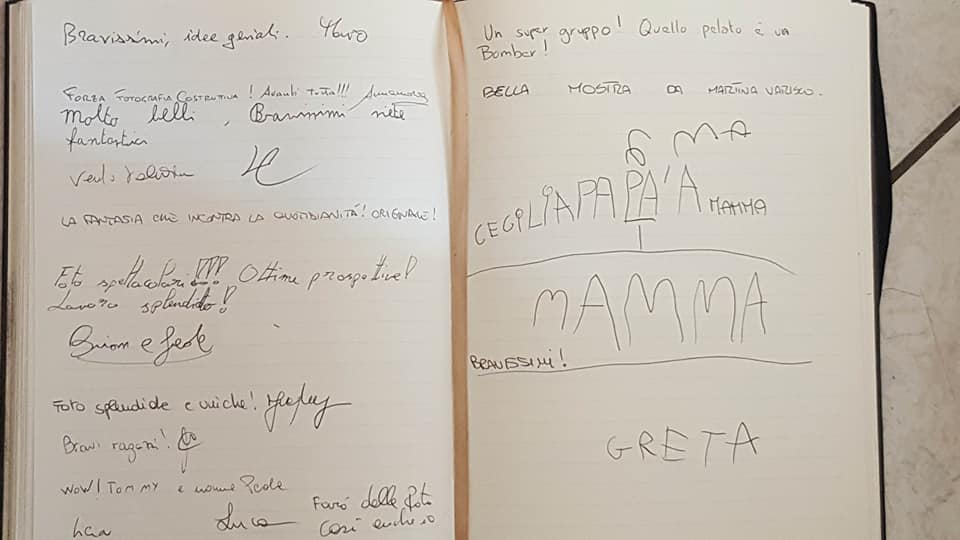 Bravissimi, idee geniali.
FORZA FOTOGRAFIA COSTRUTIVA! Avanti tutta!!!
Molto belli, Bravissimi siete
fantastici
LA FANTASIA CHE INCONTRA LA QUOTIDIANITÀ! ORIGINALE!
Foto spettacolari!!! Ottime prospettive!
Lavoro splendido!
Foto splendide e uniche!
Bravi ragazzi!
WOW! TOMMY e nonne
Luca
Farò delle foto
così anch'io
Un super gruppo! Quello pelato è un
Bomber!
BELLA MOSTRA DA MARTINA VARISCO.
MA
CECILIA PAPA'A MAMMA
MAMMA
BRAVISSIMI!
GRETA